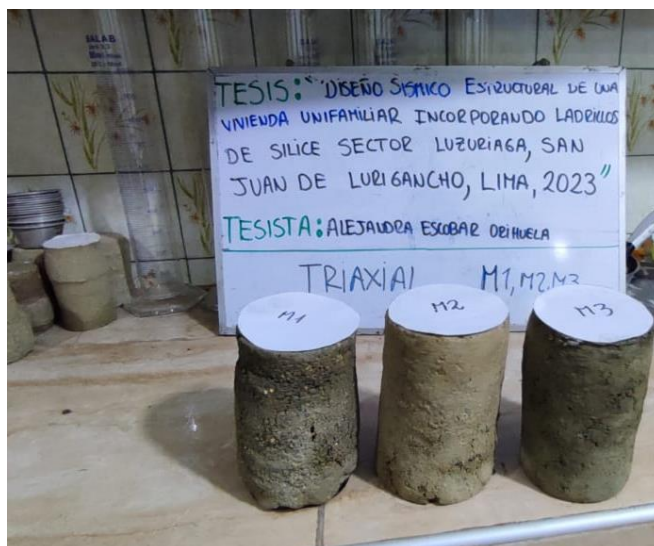 TESIS: "DISEÑO SISMICO ESTRUCTURAL DE UNA
VIVIENDA UNIFAMILIAR INCORPORANDO LADRILLOS
DE SILICE SECTOR LUZURIAGA, SAN
JUAN DE LURIGANCHO, LIMA, 2023"
TESISTA: ALEJANDRA ESCOBAR ORIHUELA
TRIAXIAL M1, M2, M3
M1
M2
M3